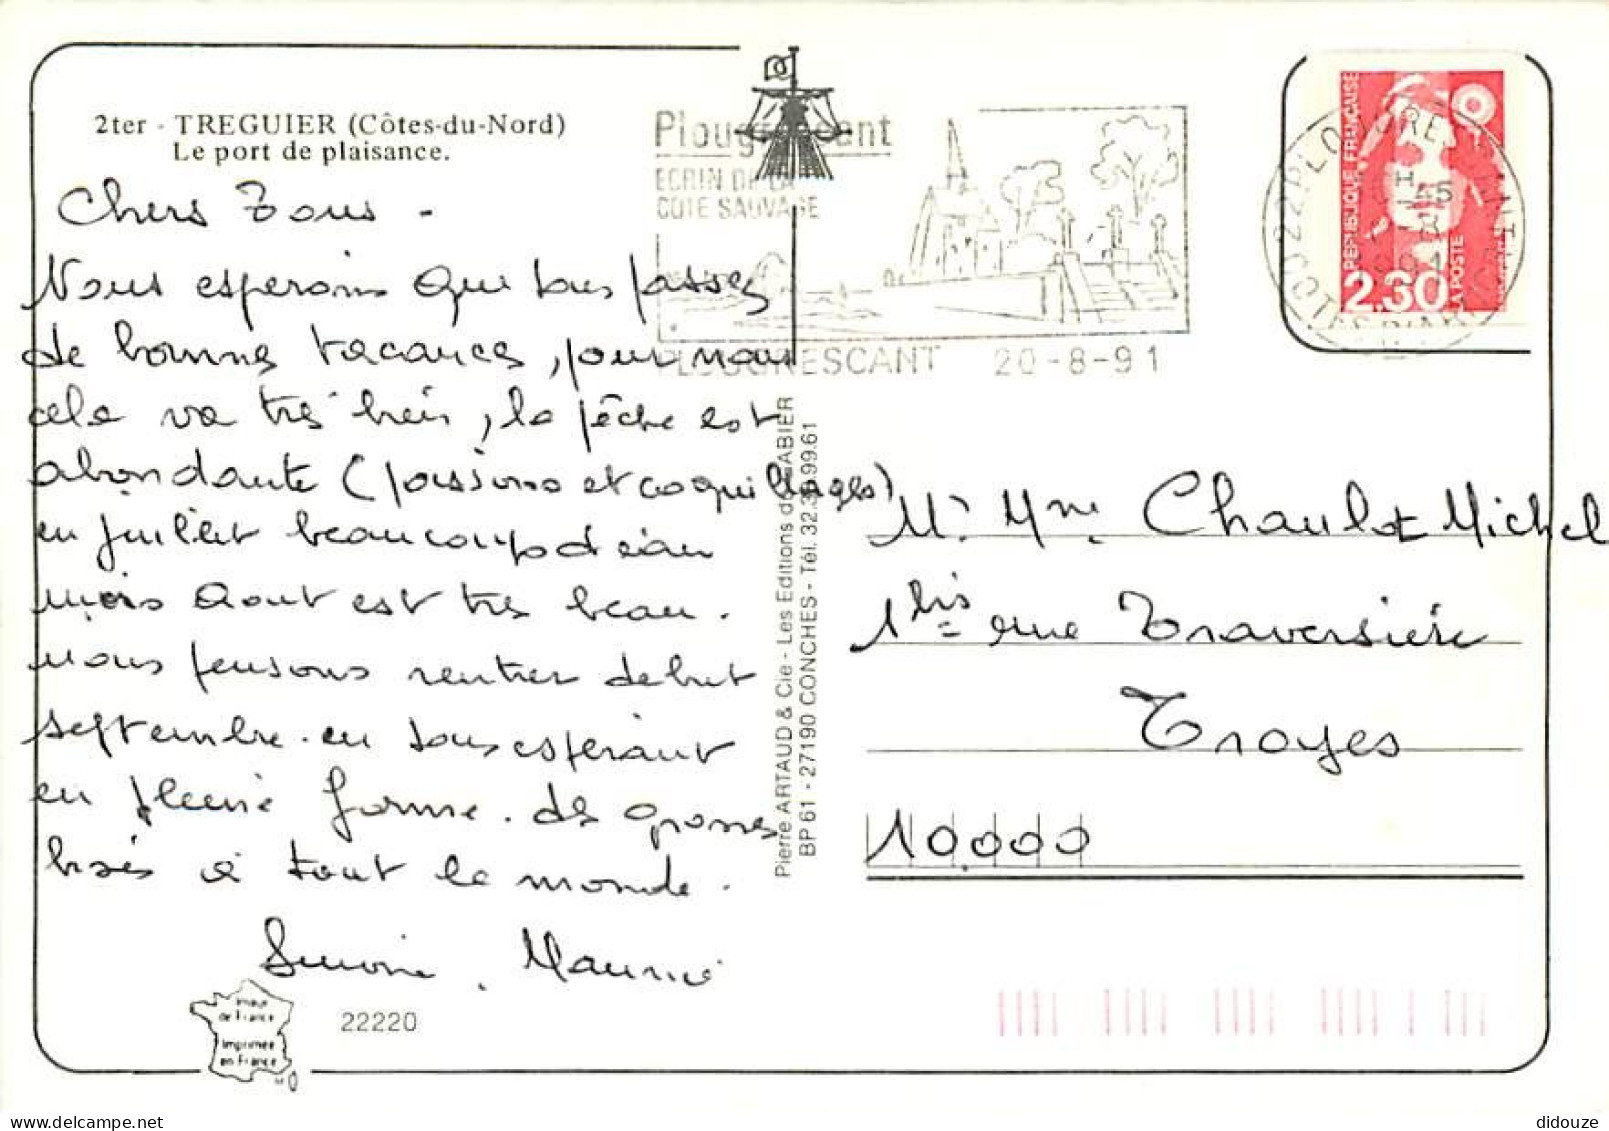 2ter - TREGUIER (Côtes-du-Nord)
Le port de plaisance.
Plougrescant
ECRIN DE LA
COTE SAUVAGE
PLOUGRESCANT 20-8-91
RÉPUBLIQUE FRANÇAISE
2,30
LA POSTE
Chers Tous -
Nous esperons que vous passez
de bonnes vacances, pour nous
cela va très bien, la pêche est
abondante (poissons et coquillages)
en juillet beaucoup d'eau
mois Aout est très beau.
nous pensons rentrer debut
septembre. en vous espérant
en pleine forme. de grosses
bises à tout le monde.
Simone, Maurice
Pierre ARTAUD & Cie - Les Editions du GABIER
BP 61 - 27190 CONCHES - Tél. 32.30.99.61
Mr Mme Chaulot Michel
1bis rue Traversière
Troyes
10000
Image
de France
Imprimée
en France
22220
didouze